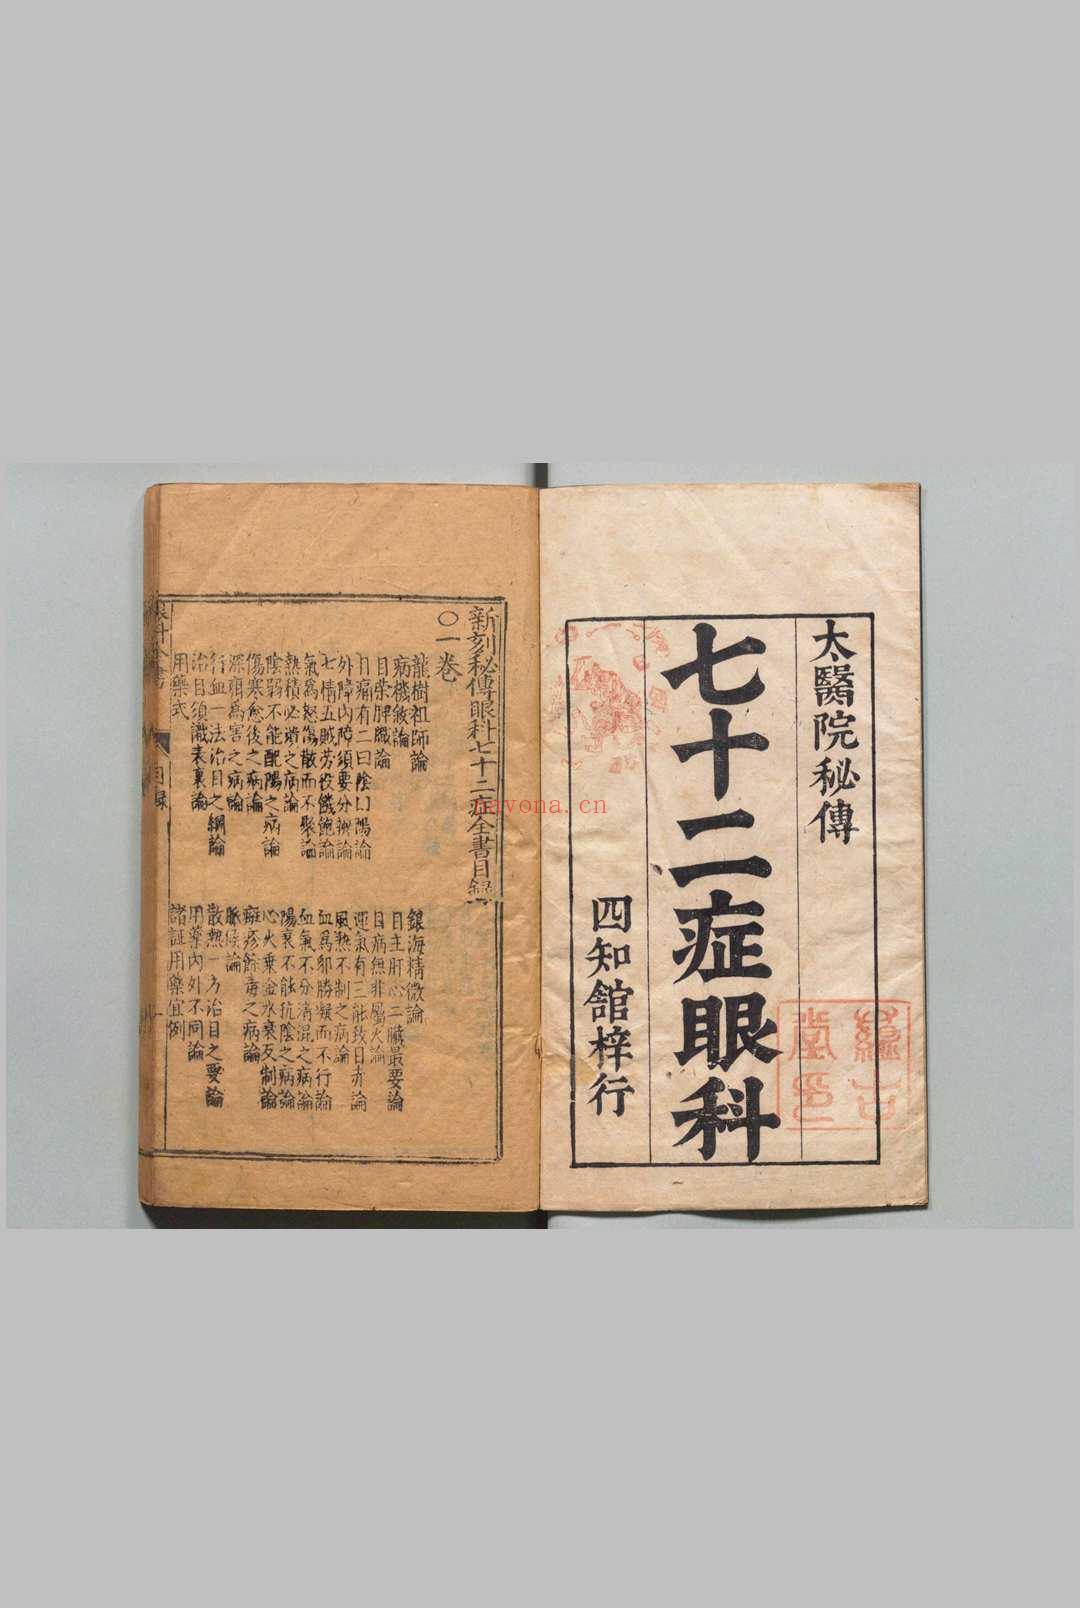 太醫院秘傳
七十二症眼科
四知舘梓行
新刻秘傳眼科七十二症全書目錄
〇一卷
龍樹祖師論
銀海精微論
病機敘論
目主肝心二臟最要論
目榮脾臟論
目病無非屬火論
目痛有二曰陰曰陽論
運氣有三能致目赤論
外障內障須要分辨論
風熱不制之病論
七情五賊勞役饑飽論
血爲邪勝凝而不行論
氣爲怒傷散而不聚論
血氣不分淆混之病論
熱積必潰之病論
陽衰不能抗陰之病論
陰弱不能配陽之病論
心火乘金水衰反制論
傷寒愈後之病論
癍疹餘毒之病論
深疳爲害之病論
脈候論
行血一法治目之綱論
散熱一方治目之要論
治目須識表裏論
用藥內外不同論
用藥式
諸証用藥宜例
眼科全書
目錄
一
nayona.cn